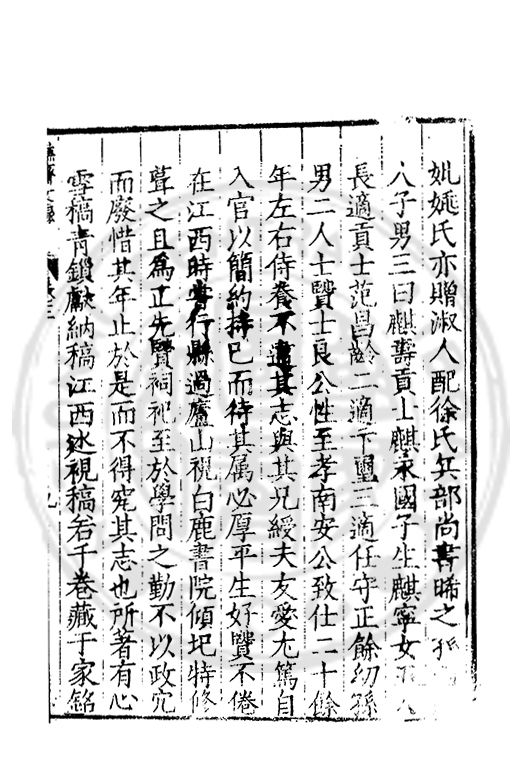 妣姚氏亦贈淑人配徐氏兵部尚書晞之孫
人子男三曰麒壽貢士麒永國子生麒寧女
長適貢士范昌齡二適卞璽三適任守正餘幼孫
男二人士賢士良公性至孝南安公致仕二十餘
年左右侍養不違其志與其兄綬夫友愛尤篤自
入官以簡約持己而待其属必厚平生好賢不倦
在江西時嘗行縣過廬山視白鹿書院傾圯特修
葺之且為正先賢祠祀至於學問之勤不以政冗
而廢惜其年止於是而不得究其志也所著有心
雪稿青鎖獻納稿江西巡視稿若干卷藏于家銘